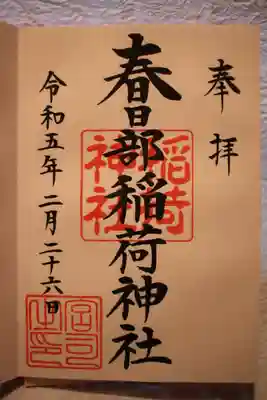 奉拝
春日部稲荷神社
令和五年二月二十六日
稲荷神社
宮司之印